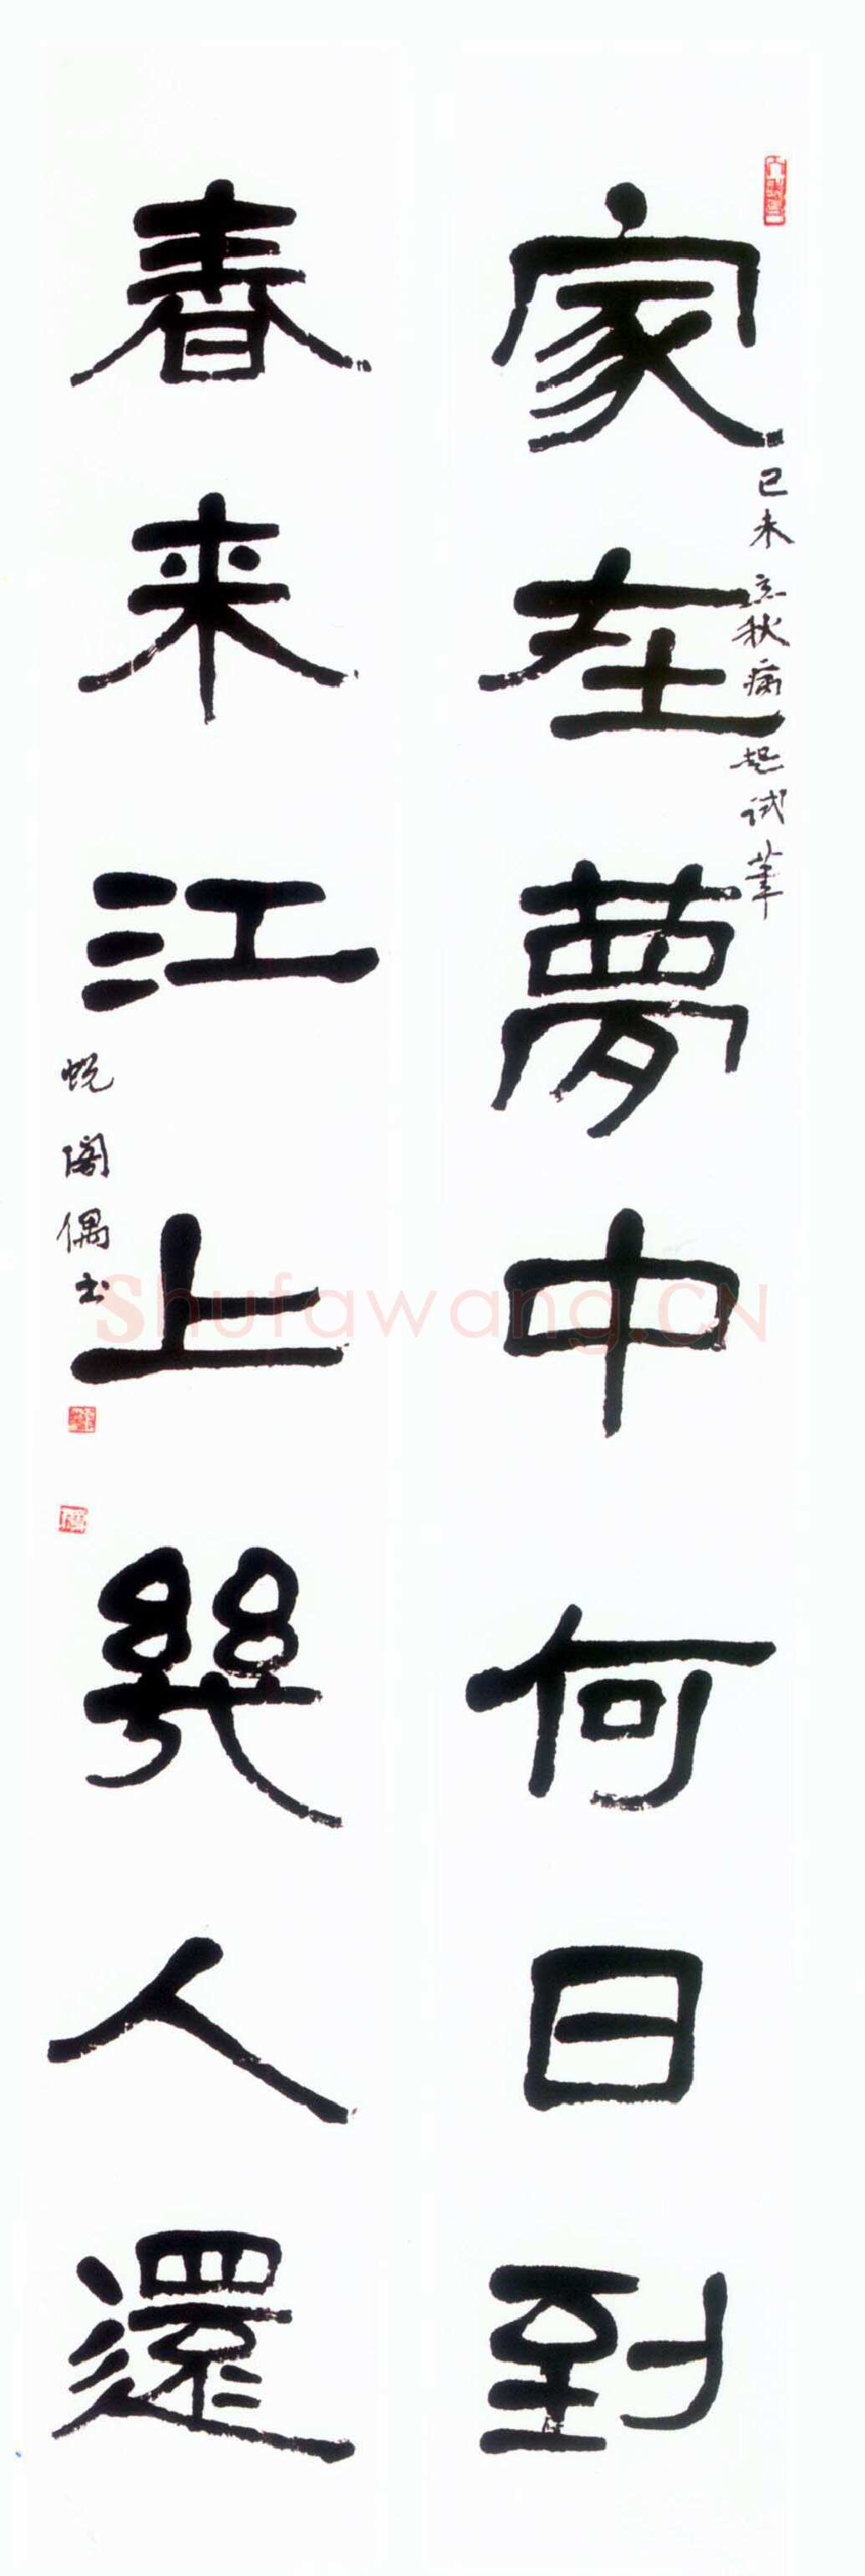 家在夢中何日到
己未立秋病起试筆
春来江上幾人還
蜕阁偶书
Shufawang.CN